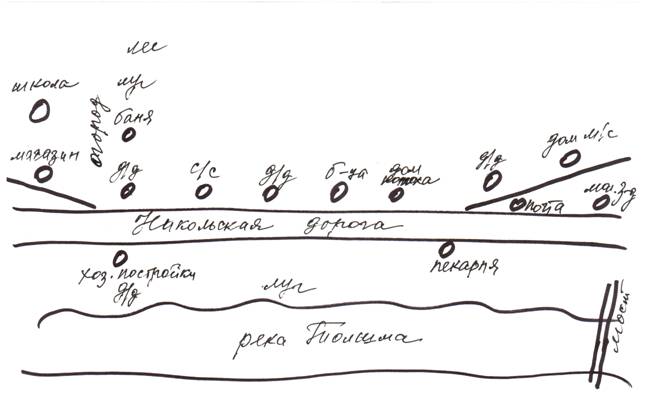 лес
школа
луг
огород
баня
магазин
д/д
с/с
д/д
б-ца
дом
д/д
дом м/с
почта
мол. з-д
Никольская дорога
хоз. постройки
д/д
пекарня
луг
мост
река Толшма